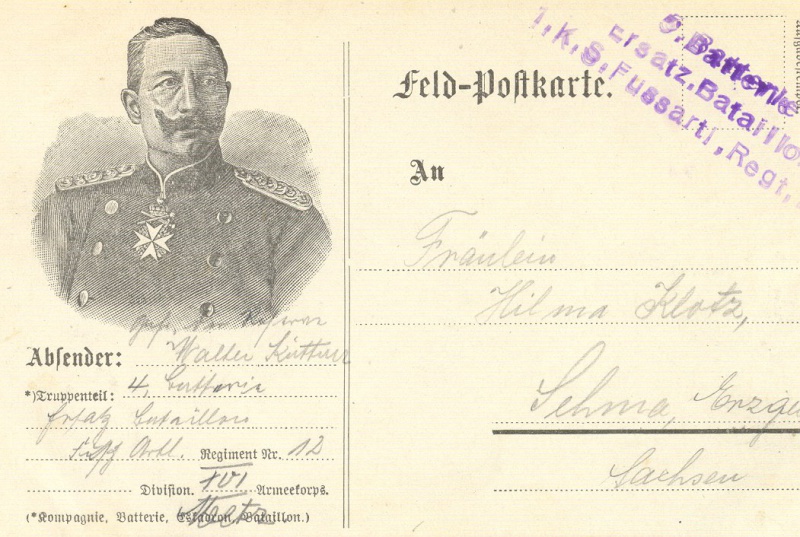 Feld-Postkarte.
5. Batterie
Ersatz.Bataillo
1.K.S.Fussartl.Regt.
An
Fräulein
Hilma Klotz,
Sehma, Erzge
Sachsen
Gefr. der Reserve
Absender: Walter Küttner
*) Truppenteil: 4. Batterie
Ersatz Bataillon
Fuß Artl. Regiment Nr. 12
Division. XVI Armeekorps.
Metz
(*Kompagnie, Batterie, Eskadron, Bataillon.)